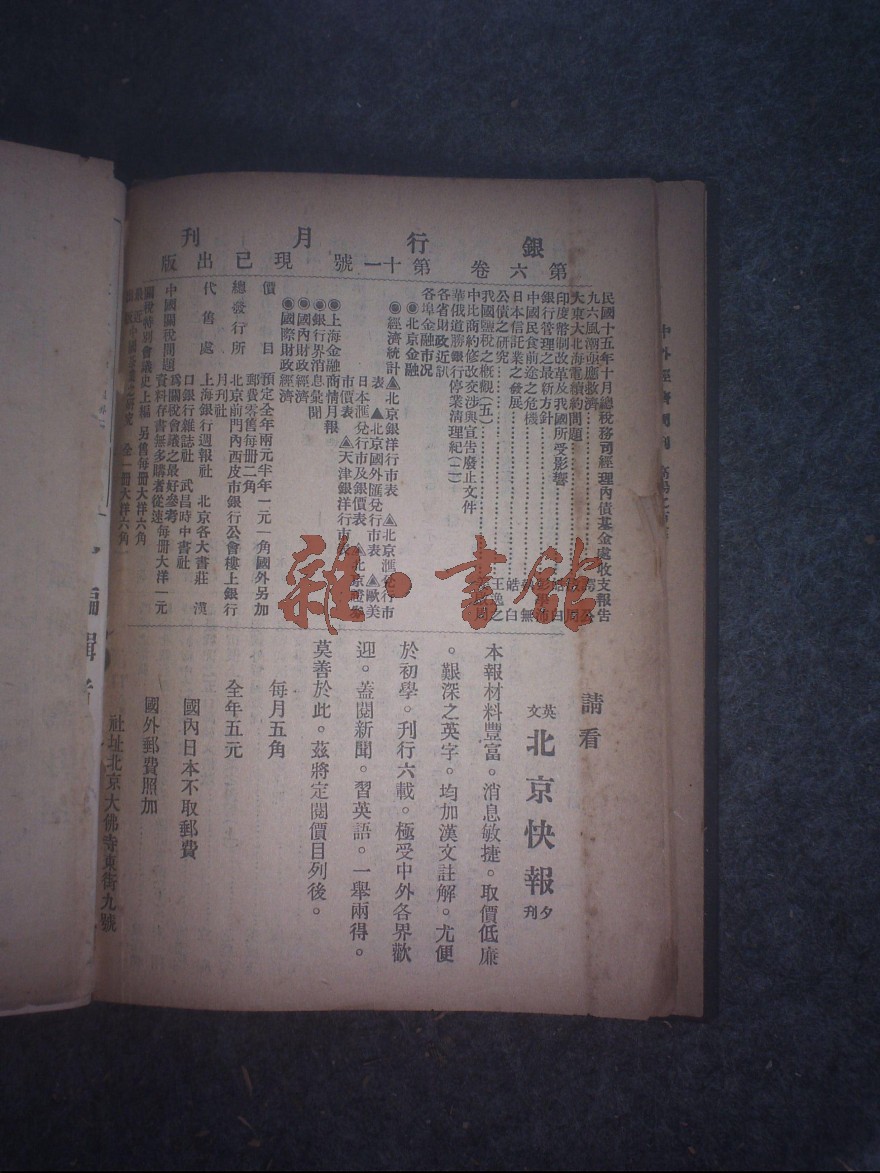 銀行月刊
第六卷第十一號現已出版
民國十五年十月總稅務司經理內債基金處收支報告
九六風潮與應救濟
大東大北海電續約問題
印度幣制改革及我國所受影響
銀行管理之最新方針
中國民食前途之危機
日本信託業之發展 皓白
公債之研究 王逸之
我國鹽稅之概觀(五)
中比商約修改交涉與宣告廢止文件
華俄道勝銀行停業清理紀(二)
各省財政近訊
各埠金融市況
◉北京金融
◉經濟統計▲北京銀洋行市表 ▲北京匯兌行市
表 ▲北京國外匯兌行市表 ▲歐美
日本匯兌行市及銀價表 ▲北京證券
市價表 ▲天津銀洋行市表
◉上海金融商情月報
◉銀行界消息彙聞
◉國內財政經濟
◉國際財政經濟
價目 預定全年兩元半年一元一角國外另加
郵費零售每冊二角
總發行所 北京前門內西皮市銀行公會樓上銀行
月刊社
代售處 上海銀行週報社 北京各大書莊 漢
口銀行雜誌社 武昌時中書社
中國關稅問題 為關稅會議之最好參考
資料存書無多購者從速每冊大洋一元
關稅特別會議史上編 另售每冊大洋六角
全一冊大洋六角
請看
英文北京快報夕刊
本報材料豐富。消息敏捷。取價低廉
。艱深之英字。均加漢文註解。尤便
於初學。刊行六載。極受中外各界歡
迎。蓋閱新聞。習英語。一舉兩得。
莫善於此。茲將定閱價目列後。
每月五角
全年五元
國內日本不取郵費
國外郵費照加
社址北京大佛寺東街九號
中外經濟週刊
編輯者
雜·書館